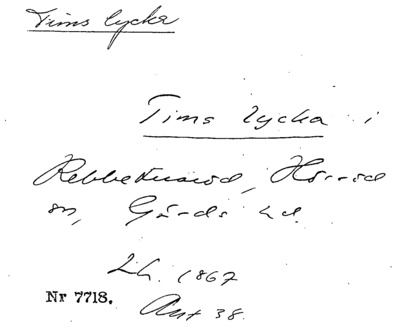 Tims lycka
Tims lycka i
Rebbetuaröd, Hörröd
sn, Gärds hd.
Lh. 1867
Nr 7718. Akt 38.